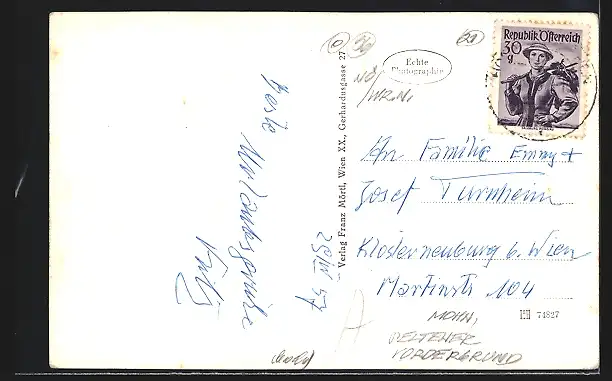 Republik Österreich
30
g
Echte
Photographie
Verlag Franz Mörtl, Wien XX., Gerhardusgasse 27
Beste
Urlaubsgrüße
Fritz
An Familie Emmy +
Josef Turnheim
Klosterneuburg b. Wien
Martinstr. 104
74827
MOHN,
VORDERGRUND